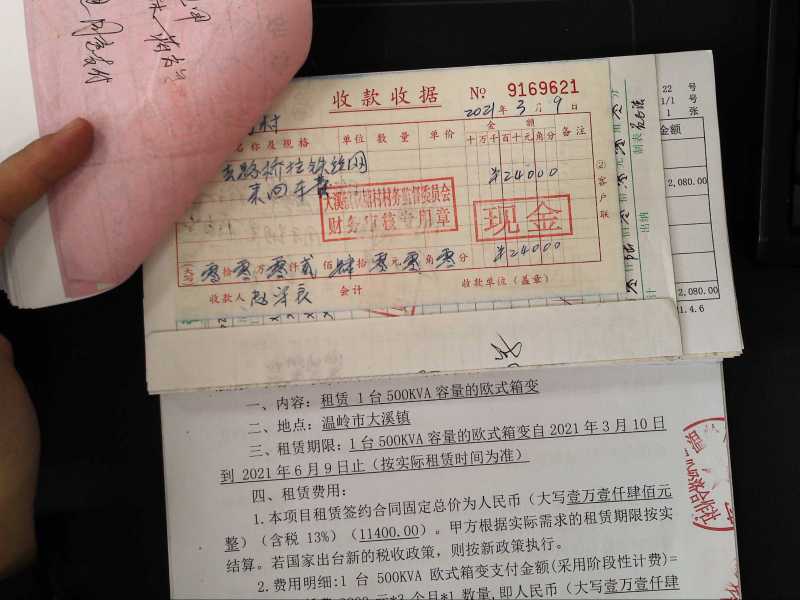 收款收据 № 9169621
2021年3月9日
村
名称及规格 单位 数量 单价 金额 备注
十万千百十元角分
路桥拉铁丝网 ¥24000
来回车费
大溪镇 村村务监督委员会
财务审核专用章
现金
¥24000
(大写) 零拾零万零仟贰佰肆拾零元零角零分
收款人 会计 收款单位(盖章)
②客户联
制表
出纳
22 号
1/1 号
1 张
金额
2,080.00
2,080.00
1.4.6
一、内容：租赁 1 台 500KVA 容量的欧式箱变
二、地点：温岭市大溪镇
三、租赁期限：1 台 500KVA 容量的欧式箱变自 2021 年 3 月 10 日
到 2021 年 6 月 9 日止（按实际租赁时间为准）
四、租赁费用：
1.本项目租赁签约合同固定总价为人民币（大写壹万壹仟肆佰元
整）（含税 13%）（11400.00）。甲方根据实际需求的租赁期限按实
结算。若国家出台新的税收政策，则按新政策执行。
2.费用明细:1 台 500KVA 欧式箱变支付金额(采用阶段性计费)=
元*3 个月*1 数量,即人民币（大写壹万壹仟肆